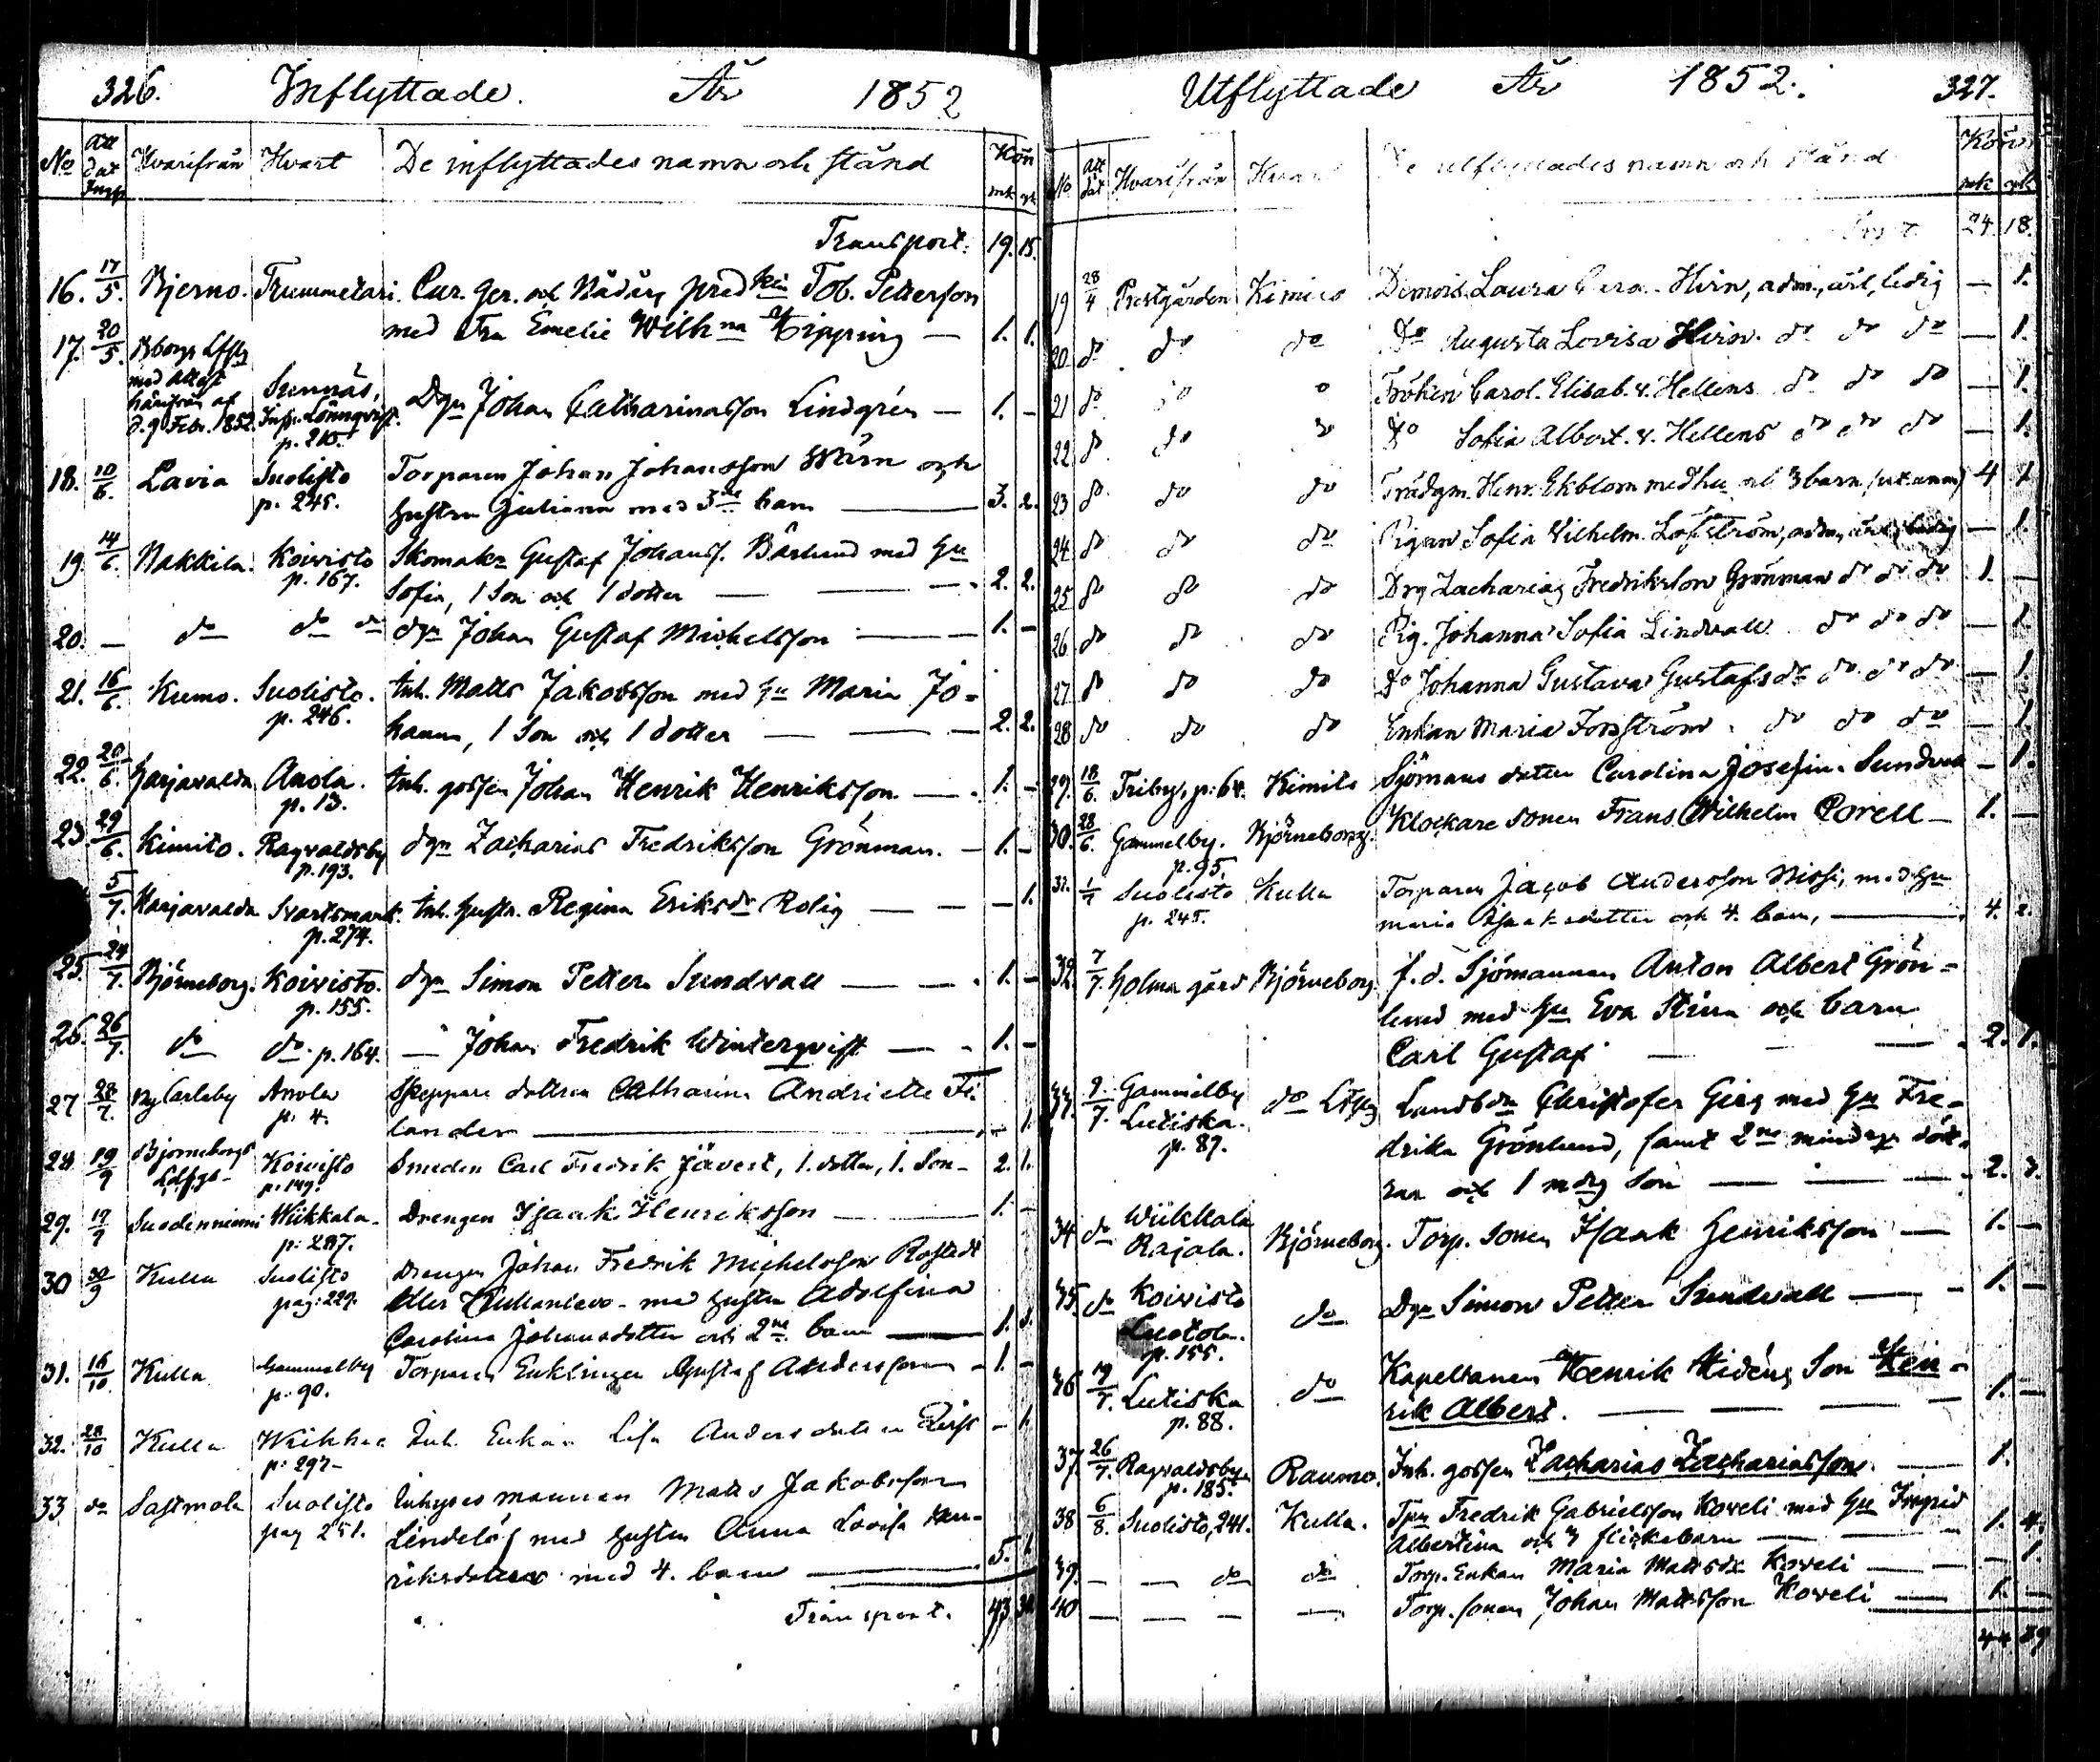 326. Inflyttade. År 1852
No Att dat Hvarifrån Hvart De inflyttades namn och stånd Kön
mk qk
Transport. 19. 15.
16. 17/5. Bjerno. Trummetari. Cur. Ger. och Nådårs pred Tob. Petterson
med Fru Emelie Wilhna Kipping — 1. 1.
17. 20/5. Bborgs Lffg
med attest
härifrån af
d. 9 Febr. 1852. Sunnäs,
Insp. Lönnqvist.
p. 210. Dgn Johan Catharinasson Lindgrén — 1. -
18. 10/6. Lavia Suolisto
p. 245. Torparen Johan Johansson Wärn och
hustru Juliana med 3ne barn — 3. 2.
19. 14/6. Nakkila. Koivisto
p. 167. Skomakr Gustaf Johanss. Bärlund med hu
Sofia, 1 son och 1 dotter — — 2. 2.
20. — do do do dgn Johan Gustaf Michelsson — 1. -
21. 16/6. Kumo. Suolisto.
p. 246. Inh. Matts Jakobsson med hu Maria Jo=
hanna, 1 son och 1 dotter — — 2. 2.
22. 20/6. Harjavalda Anola.
p. 13. Inh. gossen Johan Henrik Henriksson — 1. -
23. 29/6. Kimito. Ragvaldsby
p. 193. dgn Zacharias Fredriksson Grönman. — 1. -
5/7. Harjavalda Svartsmark.
p. 274. Inh. hustr. Regina Eriksdr Rolig — — 1.
25. 24/7. Björneborg. Koivisto.
p. 155. dgn Simon Petter Sundvall — — 1. -
26. 26/7. do do. p. 164. — Johan Fredrik Winterqvist — 1. -
27 28/7. Ny Carleby Anola
p. 4. Skeppare dottren Catharina Andriette Fi-
lander — 1.
28 19/9 Björneborgs
Ldfgs- Koivisto
p. 149. Smeden Carl Fredrik Jävert, 1. dotter, 1. Son- 2. 1.
29. 19/9 Suodenniemi Wiikkala
p: 287. Drengen Isaak Henriksson — 1. -
30 30/9 Kulla Suolisto
pag: 229. Drengen Johan Fredrik Michelsson Rostedt
eller - med hustru Adolfina
Carolina Johansdotter och 2ne barn — 1. 3.
31. 16/10 Kulla Gammelby
p: 90. Torparen Enklingen Gustaf Andersson - 1. -
32. 28/10 Kulla Wiikka
p: 297- Inh. Enkan Lisa Andersdotter - 1.
33 do Sastmola Suolisto
pag 251. Inhyses mannen Matts Jakobsson
Lindelöf med hustru Anna Lovisa Hen-
riksdotter med 4. barn — 5. 1.
Transport. 43 34
Utflyttade År 1852. 327.
No Att dat Hvarifrån Hvart De utflyttades namn och stånd Kön
mk qk
24. 18.
19 28/4 Prestgården Kimito Demois. Laura Caro. Hirn, adm., ärl, ledig — 1.
20 do do do Do Augusta Lovisa Hirn. do do do — 1.
21 do do o Fröken Carol. Elisab. v. Hellens do do do — 1.
22 do do do Do Sofia Albert. v. Hellens do do do — 1.
23 do do do Trädgm. Henr. Ekblom med hu och 3 barn 4 1
24 do do do Pigan Sofia Vilhelm. Löfström, adm, ärl, ledig — 1.
25 do do do Drg Zacharias Fredriksson Grönman do do do 1. —
26 do do do Pig. Johanna Sofia Lindvall do do do — 1.
27 do do do Do Johanna Gustava Gustafsdr do do do — 1
28 do do do Enkan Maria Forsström. do do do — 1.
29. 18/6. Friby, p: 64. Kimito Sjömans dotter Carolina Josefina Sundvall — 1.
30. 28/6. Gammelby.
p. 95. Björneborg. Klockare sonen Frans Wilhelm Corell — 1. —
31. 1/7 Suolisto
p. 245. Kulla Torparen Jacob Andersson Nissi, med hu
Maria Isaaksdotter och 4. barn, — 4. 2.
32. 7/7. Holma gård Björneborg. f. d. Sjömannen Anton Albert Grön=
lund med hu Eva Stina och barn
Carl Gustaf — 2. 1.
33. 9/7. Gammelby
Lutiska.
p. 87. do Lffg Landbdn Christofer Girs med hu Fre-
drika Grönlund, samt 2ne mindrge dött-
rar och 1 mdrg son — — 2. 3.
34 do Wiikkala
Rajala. Björneborg. Torp. sonen Isaak Henriksson — 1. —
35. do Koivisto
Luotola.
p. 155. do Dgn Simon Petter Sundvall — — 1. —
36 19/7. Lutiska
p. 88. do Kapellanen Henrik Hidéns Son Hen-
rik Albert. — — — 1. —
37. 26/7. Ragvaldsby
p. 185. Raumo. Inh. gossen Zacharias Zachariasson. — 1.
38 6/8. Suolisto, 241. Kulla. Tpn Fredrik Gabrielsson Koveli med hu Ingrid
Albertina och 3 flickebarn — — 1. 4.
39. — — do do Torp. Enkan Maria Mattsdr Koveli — — 1.
40 — — — — Torp. sonen Johan Mattsson Koveli — 1. —
44 39